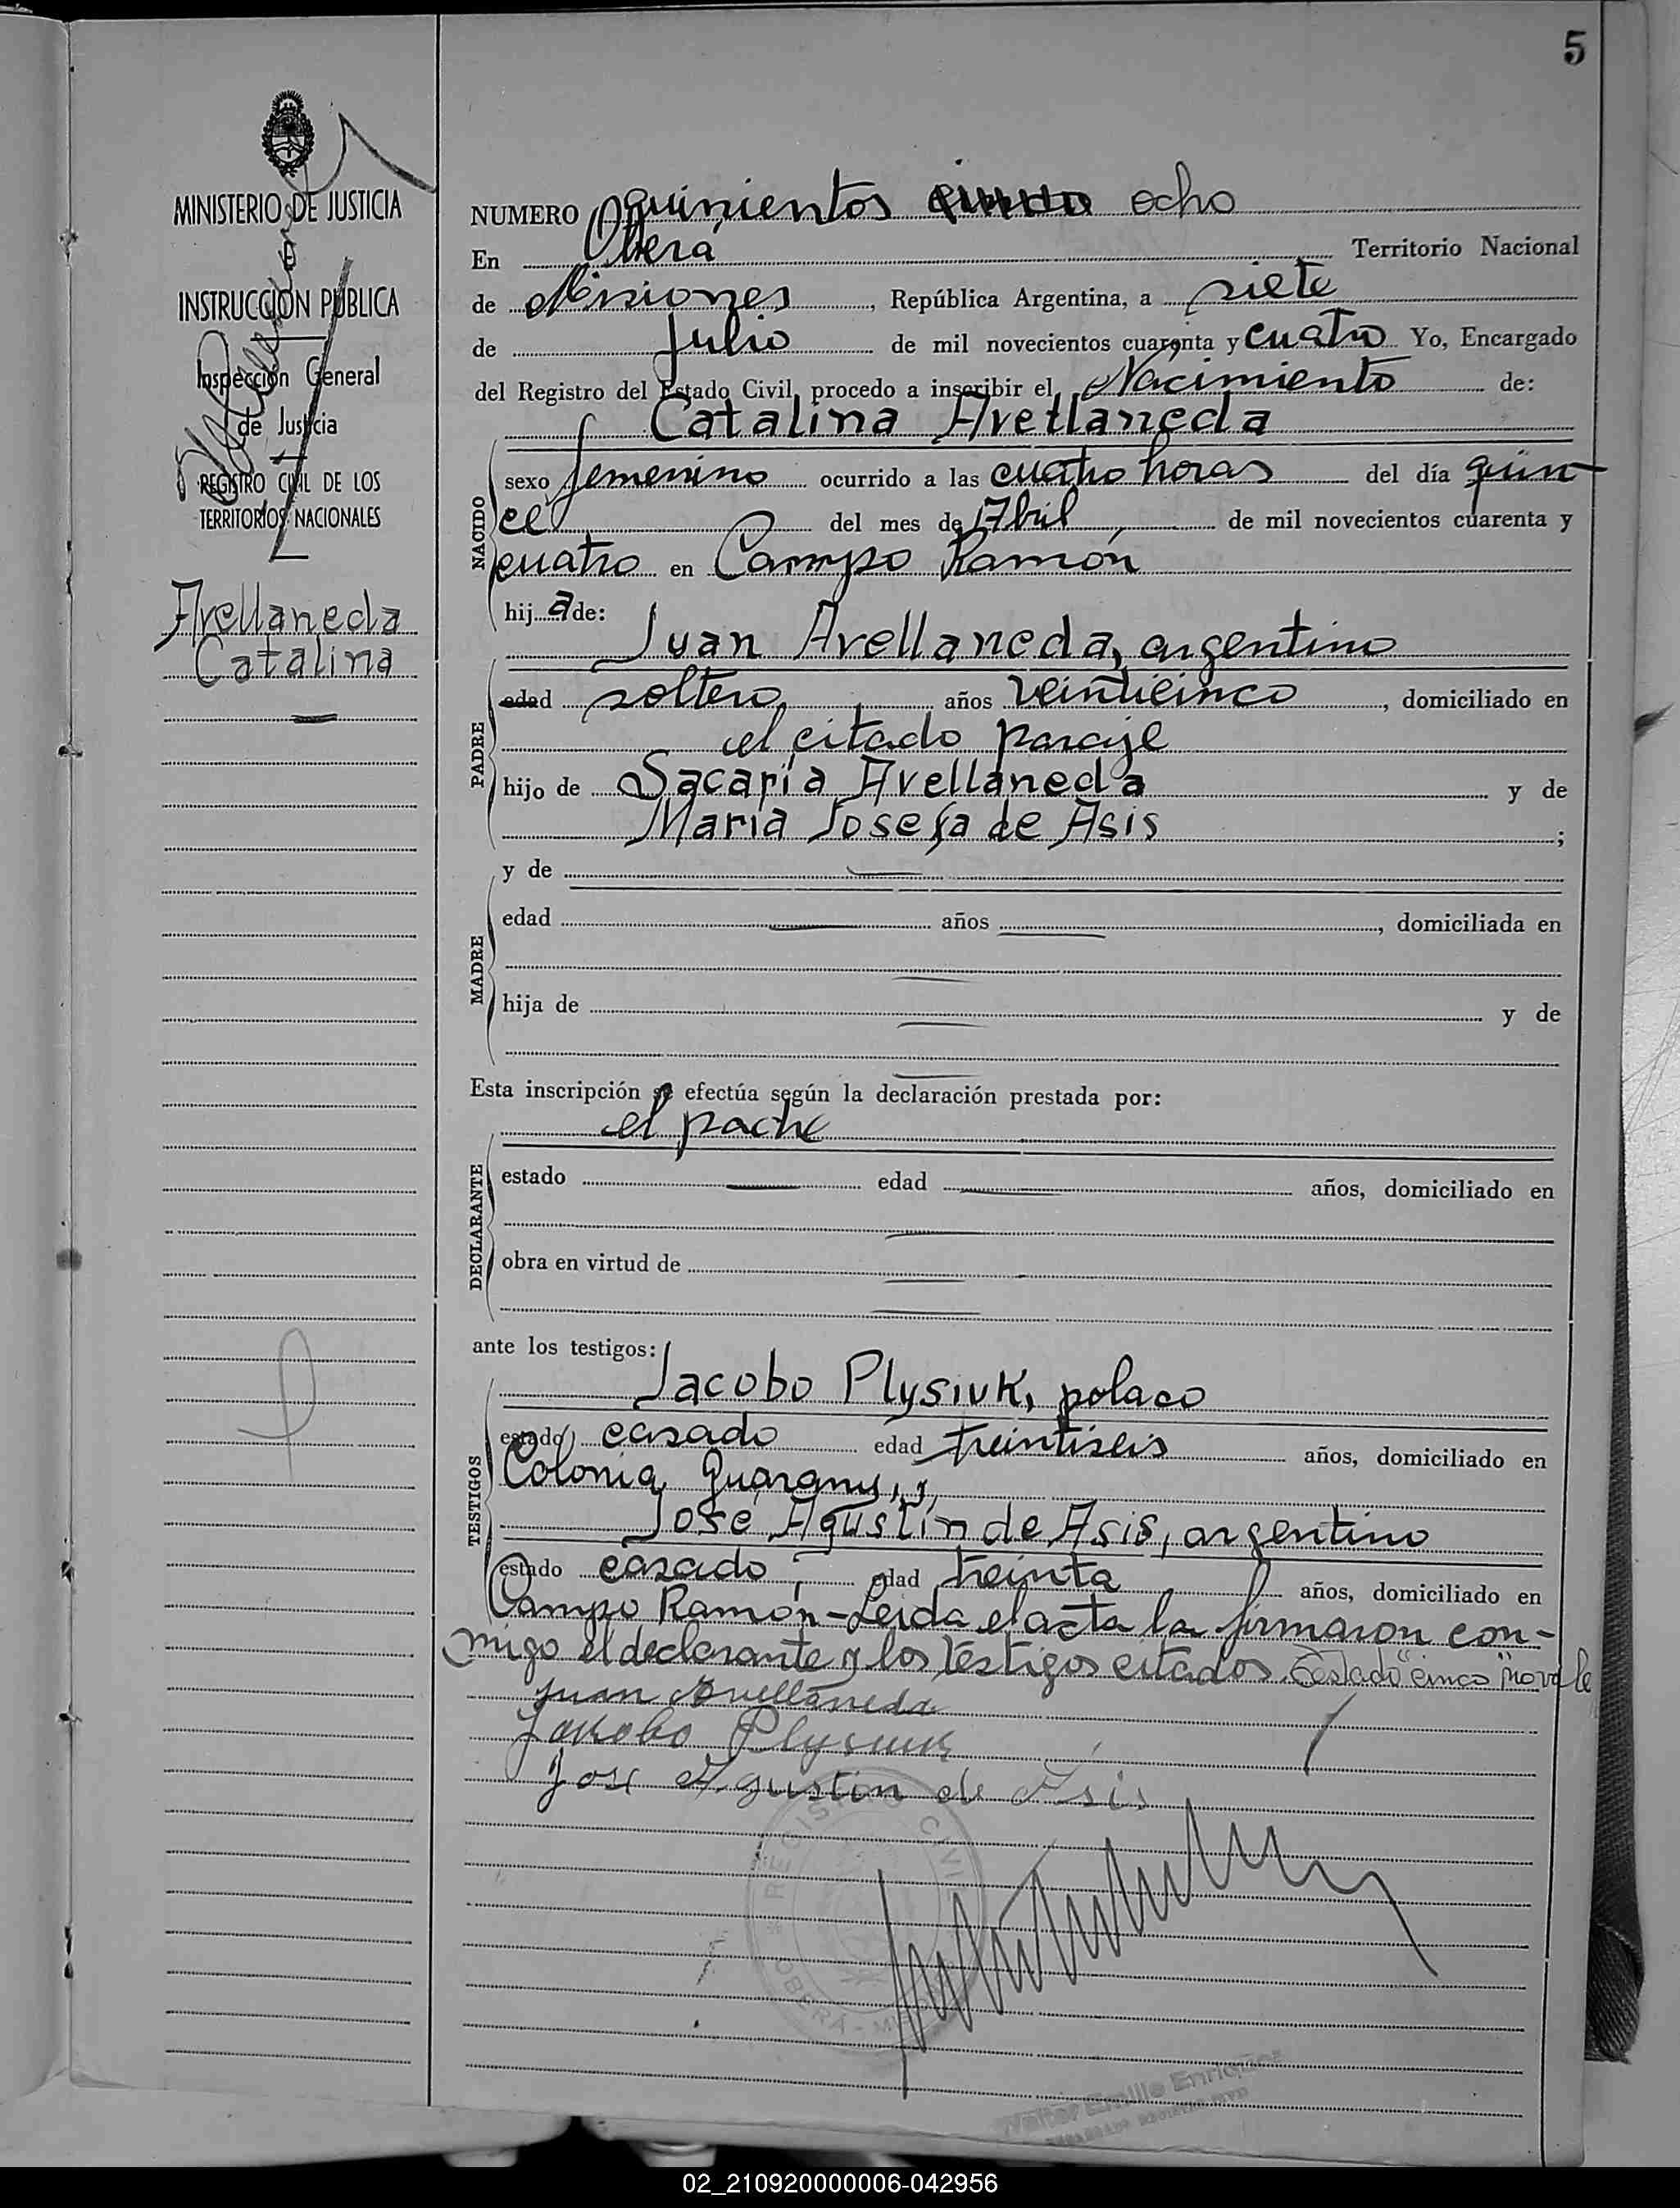 5
MINISTERIO DE JUSTICIA
INSTRUCCIÓN PÚBLICA
Inspección General
de Justicia
REGISTRO CIVIL DE LOS
TERRITORIOS NACIONALES
Avellaneda
Catalina
NUMERO quinientos ocho
En Oberá Territorio Nacional
de Misiones, República Argentina, a siete
de Julio de mil novecientos cuarenta y cuatro Yo, Encargado
del Registro del Estado Civil, procedo a inscribir el Nacimiento de:
Catalina Avellaneda
NACIDO
sexo femenino ocurrido a las cuatro horas del día quin-
ce del mes de Abril de mil novecientos cuarenta y
cuatro en Campo Ramón
hij a de:
Juan Avellaneda, argentino
PADRE
edad soltero, años veinticinco, domiciliado en
el citado paraje
hijo de Sacaría Avellaneda y de
María Josefa de Asis;
y de
MADRE
edad años, domiciliada en
hija de y de
Esta inscripción se efectúa según la declaración prestada por:
el padre
DECLARANTE
estado edad años, domiciliado en
obra en virtud de
ante los testigos:
Jacobo Plysiuk, polaco
TESTIGOS
estado casado edad treintiseis años, domiciliado en
Colonia Guarany, y,
José Agustín de Asis, argentino
estado casado, edad treinta años, domiciliado en
Campo Ramón-Leida el acta la firmaron con-
migo el declarante y los testigos citados. Testado "cinco" no vale
Juan Avellaneda
Jakobo Plysiuk
Jose Agustin de Asis
REGISTRO CIVIL
OBERÁ - MI
Walter Emilio Enriquez
02_210920000006-042956